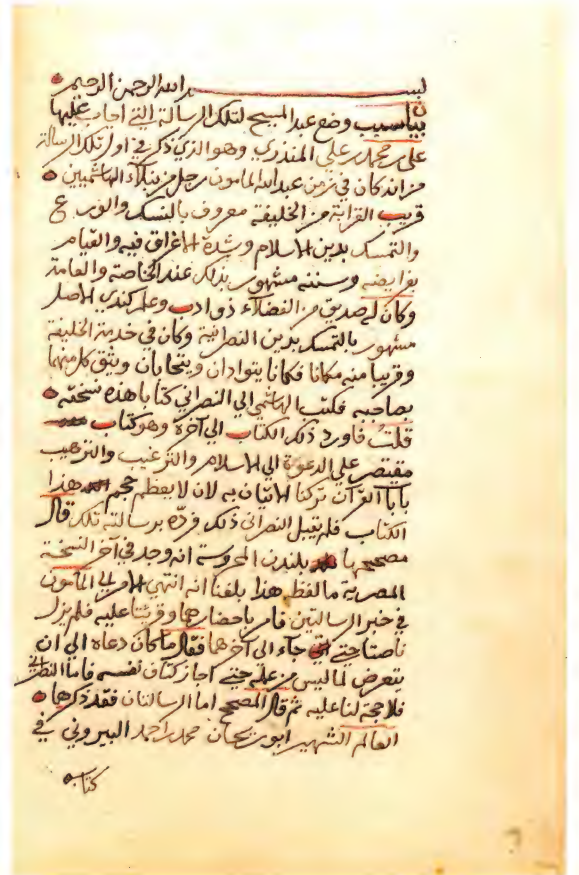 بسم الله الرحمن الرحيم
بيان سبب وضع عبد المسيح لتلك الرسالة التي اجاب عليها
علي بن محمد بن علي المنذري وهو الذي ذكر في اول تلك الرسالة
من انه كان في زمن عبد الله المامون رجل من نبلاء الهاشميين
قريب القرابة من الخليفة معروف بالنسك والورع
والتمسك بدين الاسلام وشدة الاغراق فيه والقيام
بفرايضه وسننه مشهور بذلك عند الخاصة والعامة
وكان له صديق من الفضلاء ذو ادب وعلم كندي الاصل
مشهور بالتمسك بدين النصرانية وكان في خدمة الخليفة
وقريبا منه مكانا فكانا يتوادان ويتحابان ويثق كل منهما
بصاحبه فكتب الهاشمي الي النصراني كتابا هذه نسخته
قلت فاورد ذلك الكتاب الي آخره وهو كتاب
مقتصر علي الدعوة الي الاسلام والترغيب والترهيب
بايات القرآن تركنا الاتيان به لان لا يعظم حجم هذا
الكتاب فلم يقبل النصراني ذلك فرده برسالته تلك قال
مصححها بلندن المحروسة انه وجد في آخر النسخة
المصرية ما لفظه هذا بلغنا انه انتهي الامر الي المامون
في خبر الرسالتين فامر باحضارهما وقرئتا عليه فلم يزل
ناصتا حتي جآء الي آخرها فقال ما كان دعاه الي ان
يتعرض لما ليس من عمله حتي اجاز كتاف نفسه فاما النصراني
فلا حجة لنا عليه ثم قال المصحح اما الرسالتان فقد ذكرها
العالم الشهير ابو ريحان محمد بن احمد البيروني في
كتابه